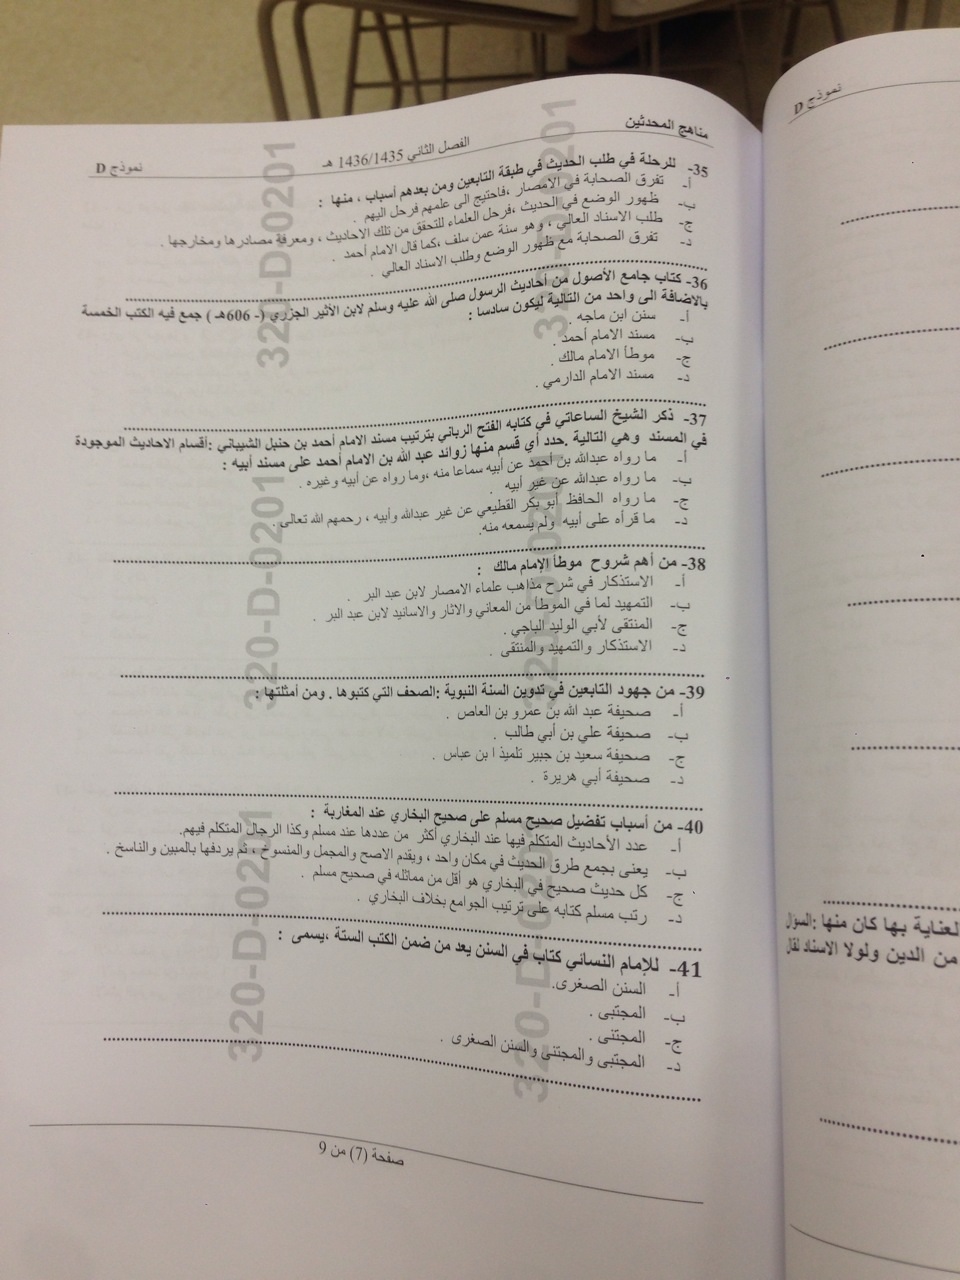 مناهج المحدثين
الفصل الثاني 1436/1435 هـ
نموذج D
35- للرحلة في طلب الحديث في طبقة التابعين ومن بعدهم أسباب ، منها :
أ- تفرق الصحابة في الامصار ،فاحتيج الى علمهم فرحل اليهم .
ب- ظهور الوضع في الحديث ،فرحل العلماء للتحقق من تلك الاحاديث ، ومعرفة مصادرها ومخارجها .
ج- طلب الاسناد العالي ، وهو سنة عمن سلف ،كما قال الامام أحمد .
د- تفرق الصحابة مع ظهور الوضع وطلب الاسناد العالي .
36- كتاب جامع الأصول من أحاديث الرسول صلى الله عليه وسلم لابن الأثير الجزري (- 606هـ ) جمع فيه الكتب الخمسة
بالاضافة الى واحد من التالية ليكون سادسا :
أ- سنن ابن ماجه .
ب- مسند الامام أحمد .
ج- موطأ الامام مالك .
د- مسند الامام الدارمي .
37- ذكر الشيخ الساعاتي في كتابه الفتح الرباني بترتيب مسند الامام أحمد بن حنبل الشيباني :أقسام الاحاديث الموجودة
في المسند وهي التالية .حدد أي قسم منها زوائد عبد الله بن الامام أحمد على مسند أبيه :
أ- ما رواه عبدالله بن أحمد عن أبيه سماعا منه ،وما رواه عن أبيه وغيره .
ب- ما رواه عبدالله عن غير أبيه .
ج- ما رواه الحافظ أبو بكر القطيعي عن غير عبدالله وأبيه ، رحمهم الله تعالى .
د- ما قرأه على أبيه ولم يسمعه منه.
38- من أهم شروح موطأ الإمام مالك :
أ- الاستذكار في شرح مذاهب علماء الامصار لابن عبد البر .
ب- التمهيد لما في الموطأ من المعاني والاثار والاسانيد لابن عبد البر .
ج- المنتقى لأبي الوليد الباجي .
د- الاستذكار والتمهيد والمنتقى .
39- من جهود التابعين في تدوين السنة النبوية :الصحف التي كتبوها . ومن أمثلتها :
أ- صحيفة عبد الله بن عمرو بن العاص .
ب- صحيفة علي بن أبي طالب .
ج- صحيفة سعيد بن جبير تلميذ ا بن عباس .
د- صحيفة أبي هريرة .
40- من أسباب تفضيل صحيح مسلم على صحيح البخاري عند المغاربة :
أ- عدد الأحاديث المتكلم فيها عند البخاري أكثر من عددها عند مسلم وكذا الرجال المتكلم فيهم.
ب- يعنى بجمع طرق الحديث في مكان واحد ، ويقدم الاصح والمجمل والمنسوخ ، ثم يردفها بالمبين والناسخ .
ج- كل حديث صحيح في البخاري هو أقل من مماثله في صحيح مسلم .
د- رتب مسلم كتابه على ترتيب الجوامع بخلاف البخاري .
41- للإمام النسائي كتاب في السنن يعد من ضمن الكتب الستة ،يسمى :
أ- السنن الصغرى.
ب- المجتبى .
ج- المجتنى .
د- المجتبى والمجتنى والسنن الصغرى .
صفحة (7) من 9
320-D-0201
320-D-0201
320-D-0201
320-D-0201
320-D-0201
320-D-0201
نموذج D
لعناية بها كان منها :السؤال
من الدين ولولا الاسناد لقال